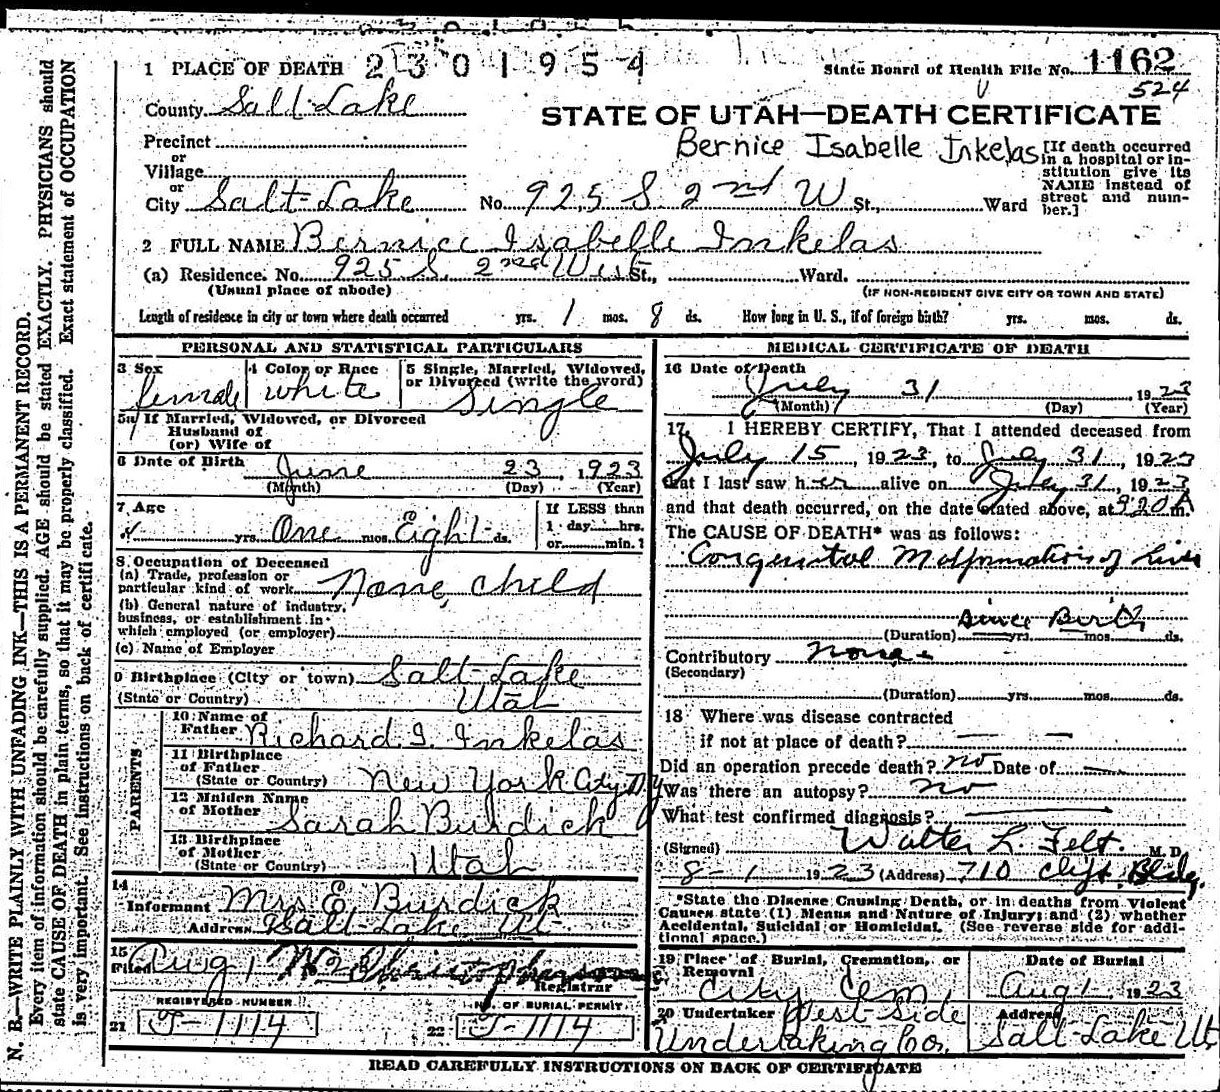 2301954
1 PLACE OF DEATH
State Board of Health File No. 1162
524
County Salt Lake
STATE OF UTAH—DEATH CERTIFICATE
Bernice Isabelle Inkelas
Precinct
or
Village
or
City Salt-Lake No. 925 S. 2nd W St., Ward
[If death occurred
in a hospital or in-
stitution give its
NAME instead of
street and num-
ber.]
2 FULL NAME Bernice Isabelle Inkelas
(a) Residence. No. 925 S. 2nd West St., Ward.
(Usual place of abode)
(IF NON-RESIDENT GIVE CITY OR TOWN AND STATE)
Length of residence in city or town where death occurred yrs. 1 mos. 8 ds. How long in U. S., if of foreign birth? yrs. mos. ds.
PERSONAL AND STATISTICAL PARTICULARS
3 Sex female
4 Color or Race white
5 Single, Married, Widowed,
or Divorced (write the word)
Single
5a If Married, Widowed, or Divorced
Husband of
(or) Wife of
6 Date of Birth June 23, 1923
(Month) (Day) (Year)
7 Age yrs. One mos. Eight ds.
If LESS than
1 day hrs.
or min.?
8 Occupation of Deceased
(a) Trade, profession or
particular kind of work None, child
(b) General nature of industry,
business, or establishment in
which employed (or employer)
(c) Name of Employer
9 Birthplace (City or town) Salt-Lake
(State or Country) Utah
PARENTS
10 Name of
Father Richard I. Inkelas
11 Birthplace
of Father
(State or Country) New York City N.Y
12 Maiden Name
of Mother Sarah Burdick
13 Birthplace
of Mother
(State or Country) Utah
14
Informant Mrs E. Burdick
Address Salt-Lake Ut
15
Filed Aug 1
Registrar
REGISTERED NUMBER
21 J-1114
NO. OF BURIAL PERMIT
22 J-1114
MEDICAL CERTIFICATE OF DEATH
16 Date of Death
July 31, 1923
(Month) (Day) (Year)
17. I HEREBY CERTIFY, That I attended deceased from
July 15, 1923, to July 31, 1923
that I last saw her alive on July 31, 1923
and that death occurred, on the date stated above, at 920 A m.
The CAUSE OF DEATH* was as follows:
Congenital Malformation of Liver
since Birth
(Duration) yrs. mos. ds.
Contributory none
(Secondary)
(Duration) yrs. mos. ds.
18 Where was disease contracted
if not at place of death? —
Did an operation precede death? no Date of —
Was there an autopsy? no
What test confirmed diagnosis? —
(Signed) Walter L. Felt. M. D.
8-1 1923 (Address) 710 Clift Bldg.
*State the Disease Causing Death, or in deaths from Violent
Causes state (1) Means and Nature of Injury; and (2) whether
Accidental, Suicidal or Homicidal. (See reverse side for addi-
tional space.)
19 Place of Burial, Cremation, or
Removal
City Cem,
Date of Burial
Aug 1. 1923
20 Undertaker West Side
Undertaking Co.
Address
Salt-Lake Ut
READ CAREFULLY INSTRUCTIONS ON BACK OF CERTIFICATE
N. B.—WRITE PLAINLY WITH UNFADING INK—THIS IS A PERMANENT RECORD.
Every item of information should be carefully supplied. AGE should be stated EXACTLY. PHYSICIANS should
state CAUSE OF DEATH in plain terms, so that it may be properly classified. Exact statement of OCCUPATION
is very important. See instructions on back of certificate.